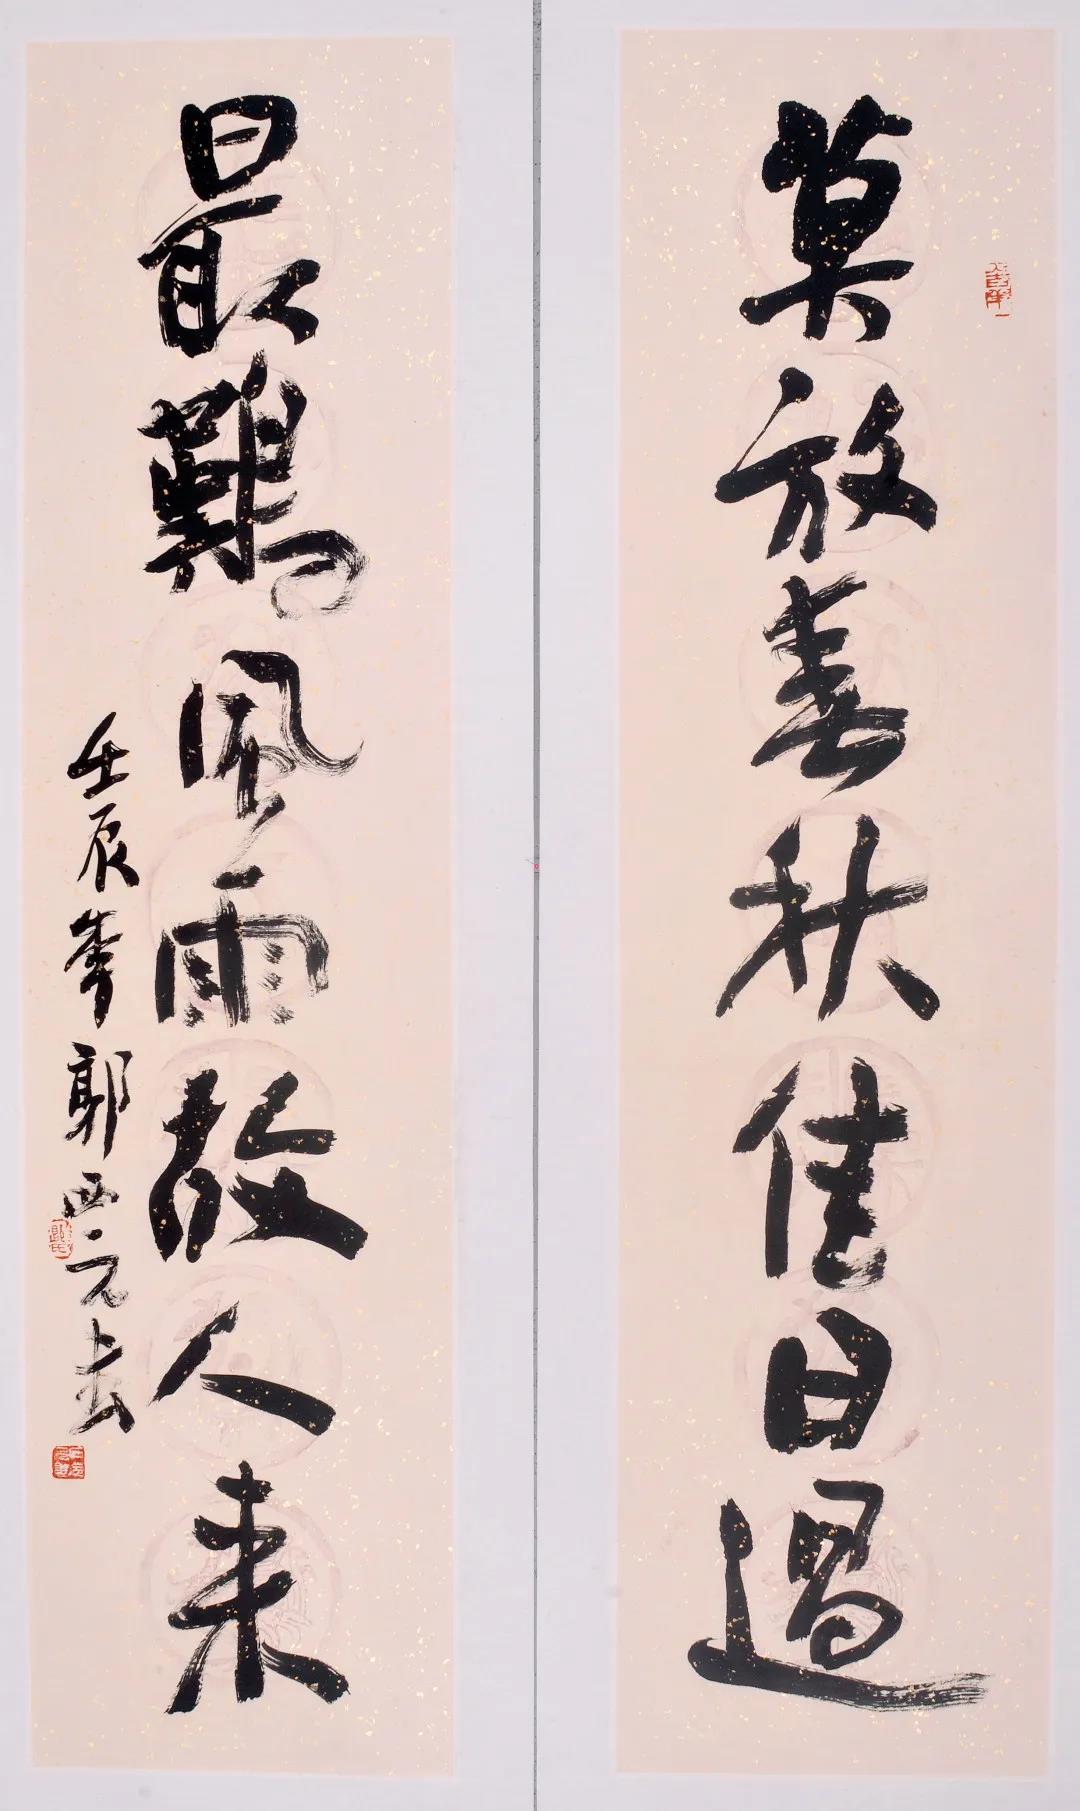 莫放春秋佳日過
最難風雨故人來
壬辰季郭西元書